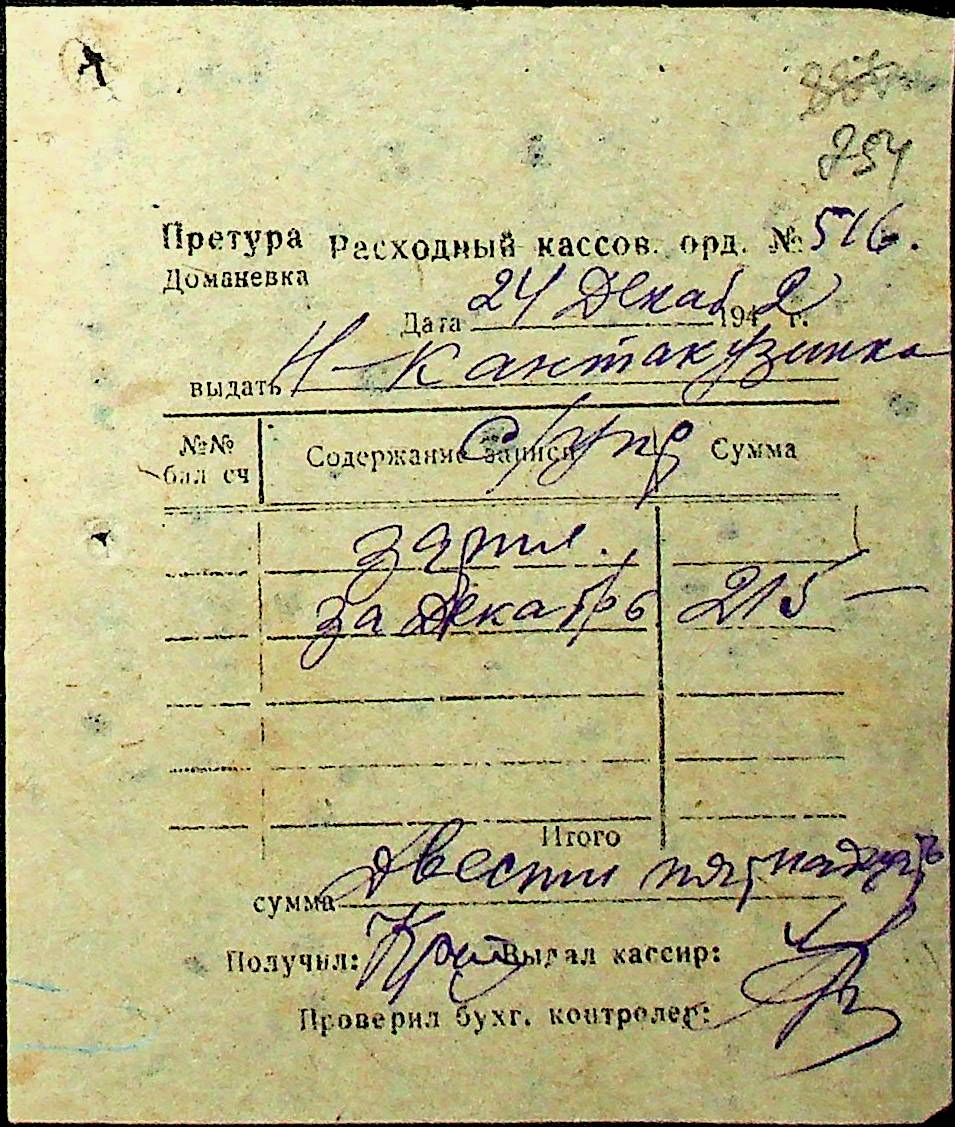 254
Претура Расходный кассов. орд. № 516.
Доманевка
Дата 24 Декаб 1942 г.
выдать Н-Кантакузинка
№№ бал сч Содержание записи Сумма
зарпл.
за Декабрь 215 —
Итого
сумма Двести пятнадцать
Получил: Выдал кассир:
Проверил бухг. контролер: